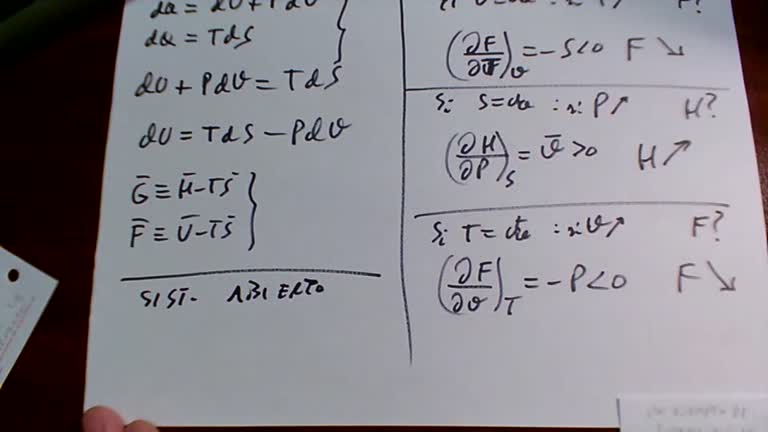 dQ = dU + PdV
dQ = TdS
dU + PdV = TdS
dU = TdS - PdV
G̅ ≡ H̅ - TS̅
F̅ ≡ U̅ - TS̅
SIST. ABIERTO
F?
(∂F/∂T)v = -S<0 F ↘
Si S=cte : si P↗ H?
(∂H/∂P)S = V̅ >0 H ↗
Si T=cte : si V↗ F?
(∂F/∂V)T = -P<0 F ↘